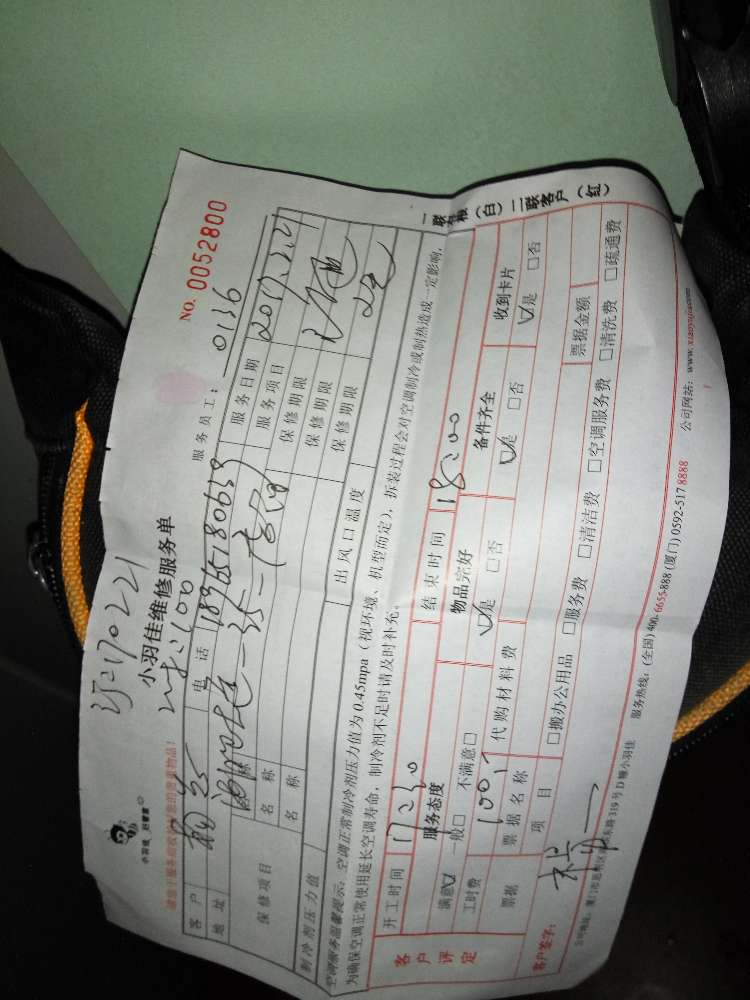 江170221
小羽佳 好管家
小羽佳维修服务单
No. 0052800
服务员工： 0136
客户
电话 18965180659
服务日期 2017.2.21
地址
服务项目
保修项目
名称
保修期限
名称
保修期限
名称
保修期限
制冷剂压力值
出风口温度
空调服务温馨提示：空调正常制冷剂压力值为 0.45mpa（视环境、机型而定），拆装过程会对空调制冷或制热造成一定影响，
为确保空调正常使用延长空调寿命，制冷剂不足时请及时补充。
客户评定
开工时间 17:30
结束时间 18:00
服务态度
物品完好
备件齐全
收到卡片
满意☑ 一般□ 不满意□
☑是 □否
☑是 □否
☑是 □否
工时费 100
代购材料费
票据
票据名称
票据金额
项目
□搬办公用品 □服务费 □清洁费 □空调服务费 □清洗费 □疏通费
客户签字：
服务热线：(全国) 400-6655-888 (厦门) 0592-517 8888
公司网站：www.xiaoyujia.com
一联存根（白）二联客户（红）